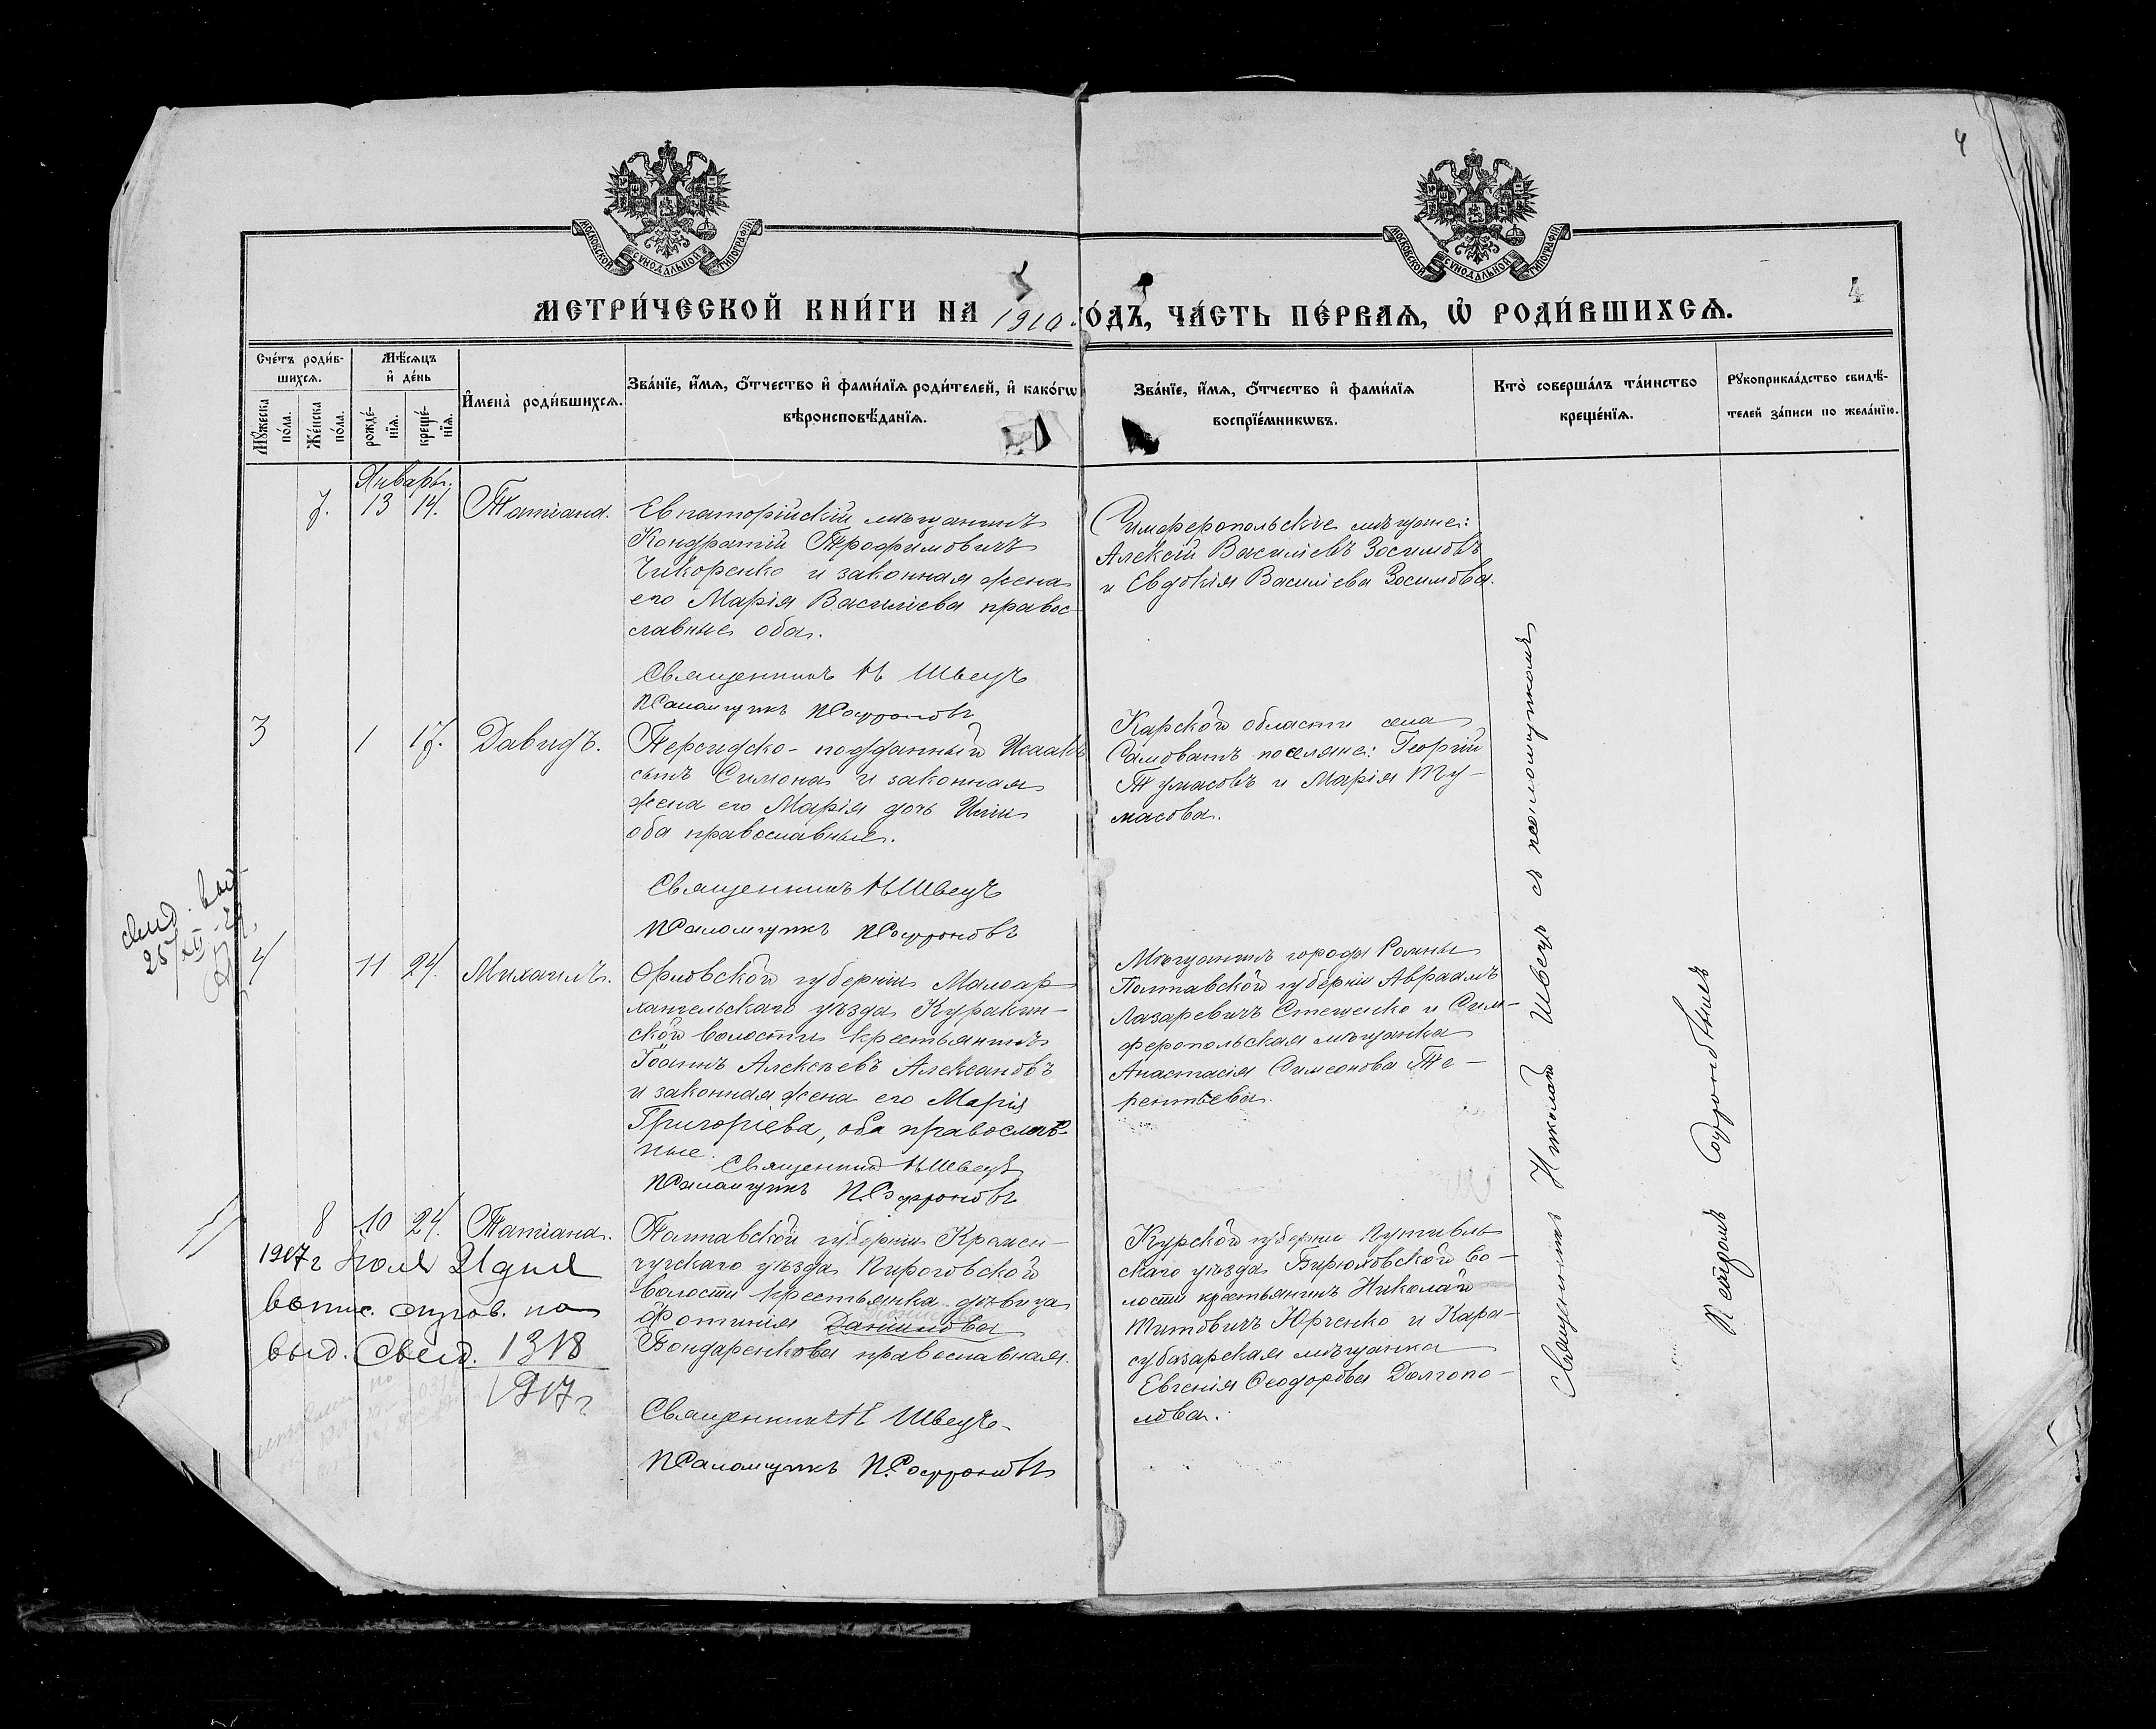 4
МОСКОВСКОЙ СѴНОДАЛЬНОЙ ТИПОГРАФІИ
МОСКОВСКОЙ СѴНОДАЛЬНОЙ ТИПОГРАФІИ
4
МЕТРИ́ЧЕСКОЙ КНИ́ГИ НА 1910 ГО́ДЪ, ЧА́СТЬ ПЕ́РВАѦ, Ѡ҆ РОДИ́ВШИХСѦ.
Сче́тъ роди́в-
шихсѧ.
Мꙋ́жеска по́ла.
Же́нска по́ла.
Мѣ́сѧцъ
и҆ де́нь
рожде́-нїѧ.
креще́-нїѧ.
И҆мена̀ роди́вшихсѧ.
Зва́нїе, и҆́мѧ, ѻ҆́тчество и҆ фами́лїѧ роди́телей, и҆ како́гѡ
вѣроисповѣ́данїѧ.
Зва́нїе, и҆́мѧ, ѻ҆́тчество и҆ фами́лїѧ
воспрїе́мникѡвъ.
Кто̀ соверша́лъ та́инство
креще́нїѧ.
Рꙋкоприкла́дство свидѣ́-
телей за́писи по жела́нїю.
Январь.
7. 13 14. Татіана.
Евпаторійскій мѣщанинъ
Кондратій Трофимовичъ
Чикоренко и законная жена
его Марія Василіева правос-
славные оба.
Священникъ Н Швецъ
Псаломщикъ П Софроновъ
Симферопольскіе мѣщане:
Алексій Василіевъ Зосимовъ
и Евдокія Василіева Зосимова.
3 1 17. Давидъ.
Персидско-подданный Исаакъ
сынъ Симона и законная
жена его Марія дочь
оба православные.
Священникъ Н Швецъ
Псаломщикъ П Софроновъ
Карской области села
Самоватъ поселяне: Георгій
Тумасовъ и Марія Ту-
масова.
4 11 24. Михаилъ.
Орловской губерніи Малоар-
хангельскаго уѣзда Куракин-
ской волости крестьянинъ
Іоаннъ Алексѣевъ Алексановъ
и законная жена его Марія
Григоріева, оба православ-
ные.
Священникъ Н Швецъ
Псаломщикъ П. Софроновъ
Мѣщанинъ города Ромны
Полтавской губерніи Авраамъ
Лазаревичъ Стеценко и Сим-
феропольская мѣщанка
Анастасія Симеонова Те-
рентьева.
8 10 24. Татіана.
Полтавской губерніи Кремен-
чугскаго уѣзда Пироговской
волости крестьянка дѣвица
Фотинія Даніилова
Бондаренкова православная.
Священникъ Н Швецъ
Псаломщикъ П. Софроновъ
Курской губерніи Путивль-
скаго уѣзда Бирюховской во-
лости крестьянинъ Николай
Титовичъ Юрченко и Кара-
субазарская мѣщанка
Евгенія Ѳеодорова Долгопо-
лова.
Священникъ Николай Швецъ съ псаломщикомъ
Петромъ Софроновымъ
свид. выд.
1917г
выд. Свид. 1318
1917г